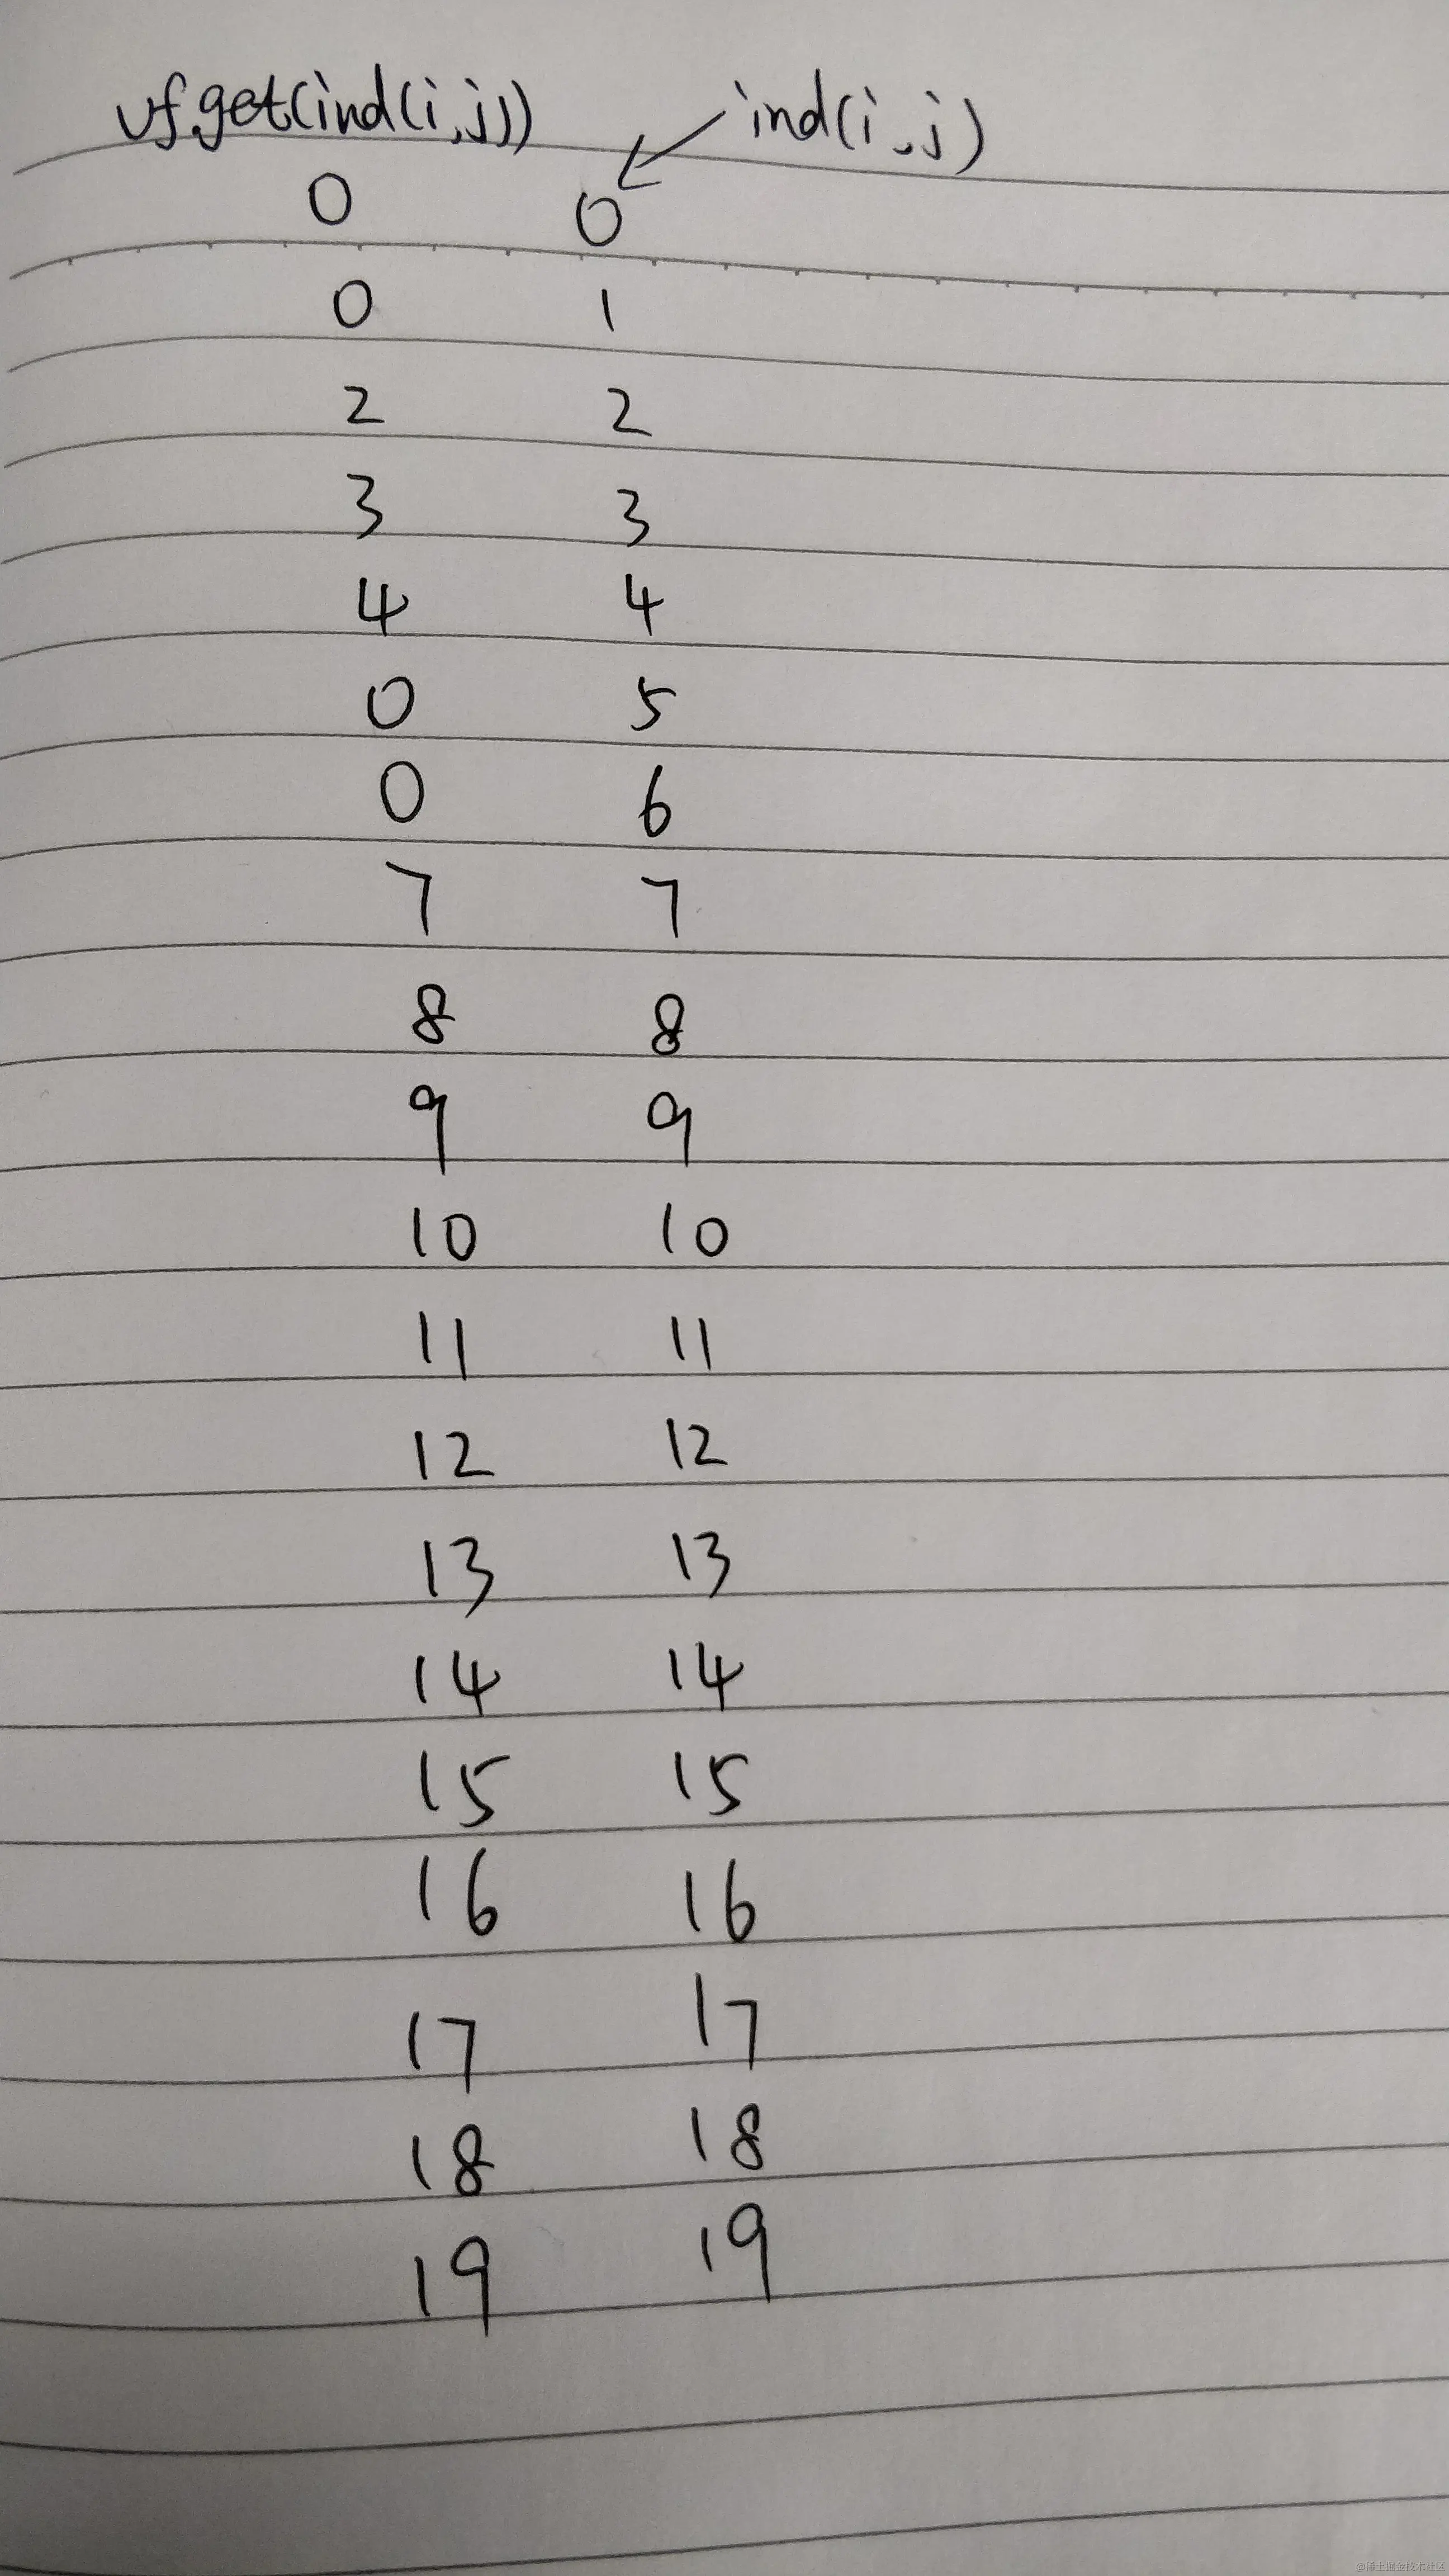 uf.get(ind(i,j)) ind(i,j)
0 0
0 1
2 2
3 3
4 4
0 5
0 6
7 7
8 8
9 9
10 10
11 11
12 12
13 13
14 14
15 15
16 16
17 17
18 18
19 19
@稀土掘金技术社区